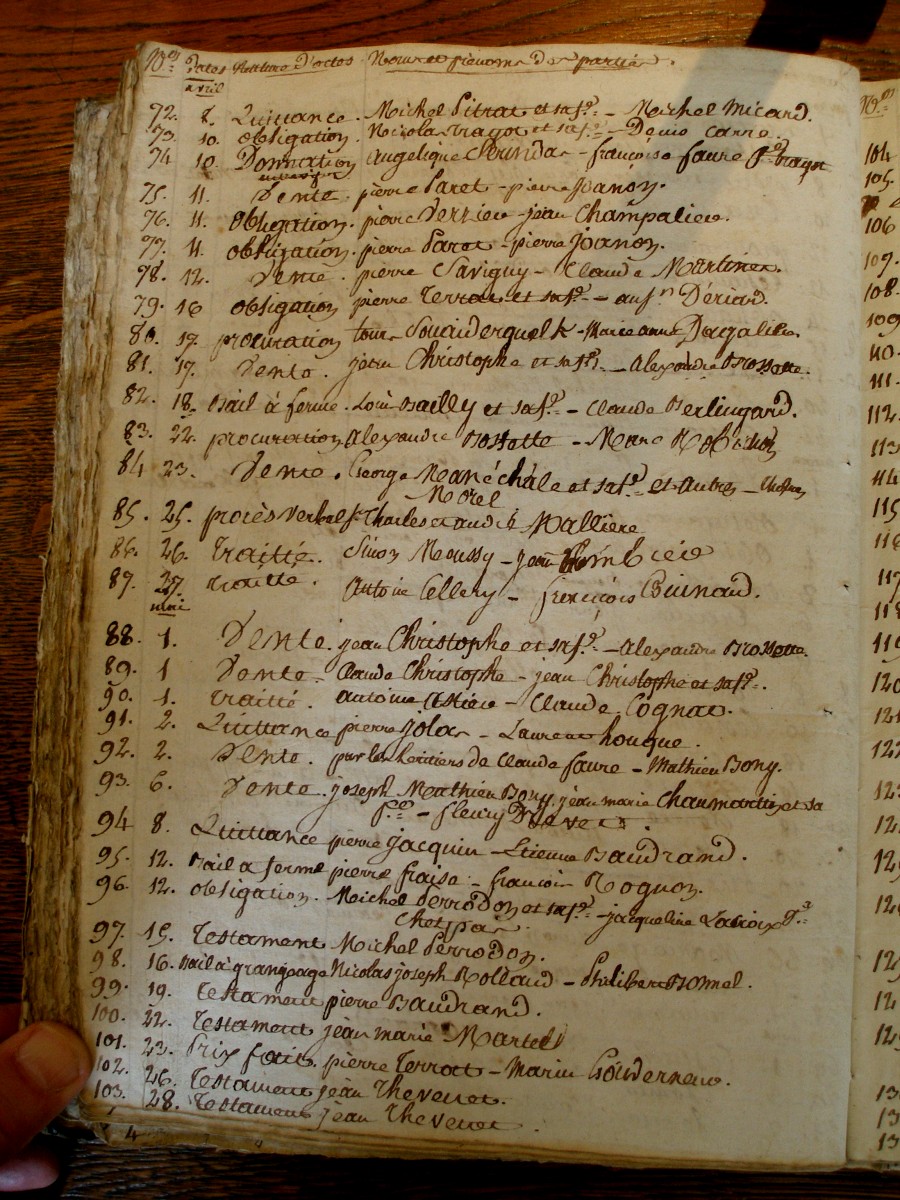 N.os Dates Nature D'actes Noms et prenoms Des parties.
avril
72. 8. Quittance. Michel Pitrat et sa f.e – Michel Micard.
73. 10. obligation. Nicolas tragot et sa f.e – Denis Carre.
74 10. Donnation Angelique – françoise faure f.e tragot
75. 11. Vente. pierre Paret – pierre Joanon.
76. 11. obligation. pierre Verriere – jean Champalier.
77. 11. obligation. pierre Paret – pierre Joanon.
78. 12. Vente. pierre Savigny – Claude Martiner.
79. 16 obligation pierre Terrat et sa f.e – D'eriard.
80. 17. procuration – Marie anne
81. 17. Vente. jean Christophe et sa f.e – alexandre Brossette.
82. 18. Bail à ferme. Louis Bailly et sa f.e – Claude Berlingard.
83. 22. procuration alexandre Bossette – Marie
84 23. Vente. George Maréchale et sa f.e et autres –
Morel
85. 25. procès verbal Charles et andré Mallière
86. 26. traitté. Simon Moussy – jean
87. 27. Antoine Cellery – françois Guinand.
mai
88. 1. Vente. jean Christophe et sa f.e – alexandre Brossette.
89. 1 Vente. Claude Christophe – jean Christophe et sa f.e.
90. 1. traitté. antoine Astier – Claude Cognat.
91. 2. Quittance pierre jolas – Laurent houque.
92. 2. Vente. par les heritiers de Claude faure – Mathieu Bony.
93. 6. Vente. joseph Mathieu Bony. jean marie Chaumartin et sa
f.e – fleury
94 8. Quittance pierre jacquin – Etienne Baudrand.
95. 12. Bail a ferme pierre fraise – françois Rognon.
96. 12. obligation. Michel Perrodon et sa f.e – jacqueline Lacroix
97. 15. Testament Michel Perrodon.
98. 16. Bail à grangeage Nicolas joseph Rolland – Philibert Bonnel.
99. 19. Testament pierre Baudrand.
100. 22. Testament jean marie Martel
101. 23. Prix fait. pierre Terrat – Marin Gouderneur.
102. 26. Testament jean Thevenet.
103. 28. Testament jean Thevenet.
N.os
104
105.
106
107.
108.
109
110.
111.
112.
113
114
115
116
117
118
119
120
121
122